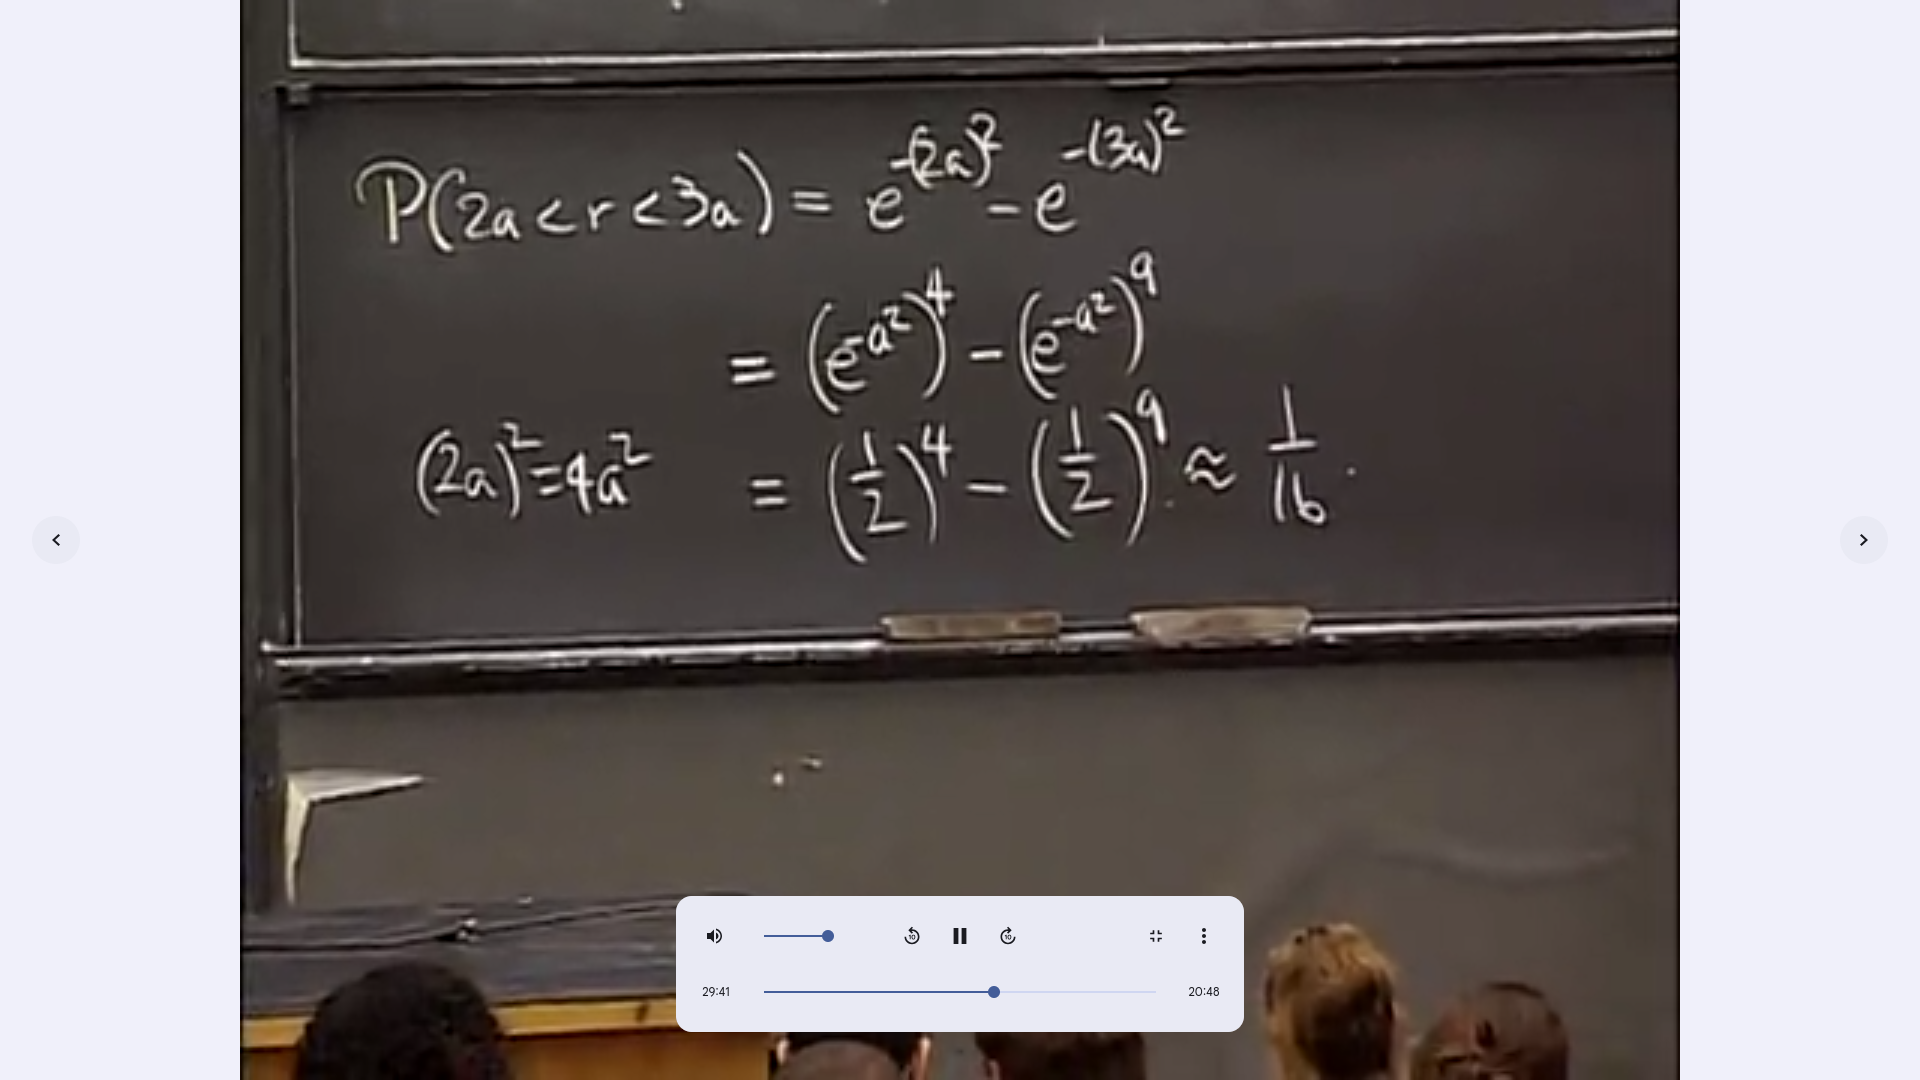 P(2a < r < 3a) = e^{-(2a)^2} - e^{-(3a)^2}
= (e^{-a^2})^4 - (e^{-a^2})^9
(2a)^2 = 4a^2 = (1/2)^4 - (1/2)^9 ≈ 1/16.
10 10
29:41 20:48